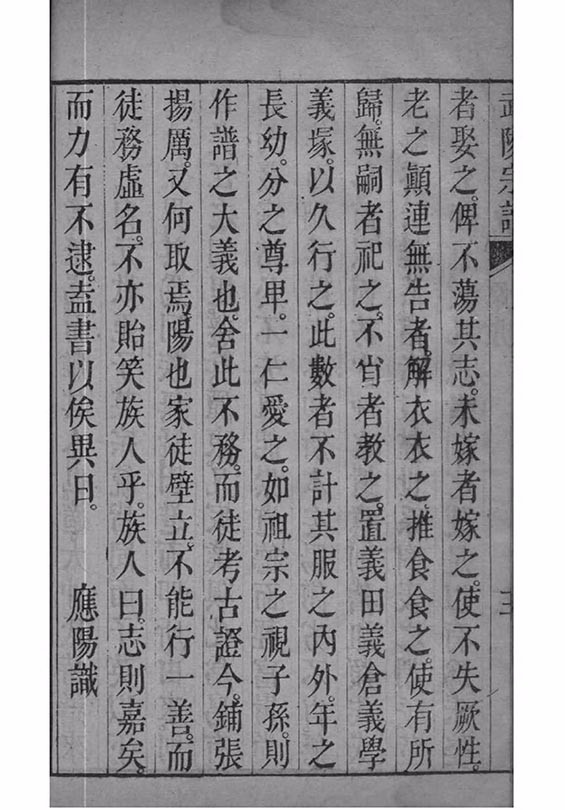 武陽宗譜
者娶之。俾不蕩其志。未嫁者嫁之。使不失厥性。
老之顚連無告者。解衣衣之。推食食之。使有所
歸。無嗣者祀之。不肖者教之。置義田義倉義學
義塚。以久行之。此數者不計其服之內外。年之
長幼。分之尊卑。一仁愛之。如祖宗之視子孫。則
作譜之大義也。舍此不務。而徒考古證今。鋪張
揚厲。又何取焉。陽也家徒壁立。不能行一善。而
徒務虛名。不亦貽笑族人乎。族人曰。志則嘉矣。
而力有不逮。盍書以俟異日。 應陽識